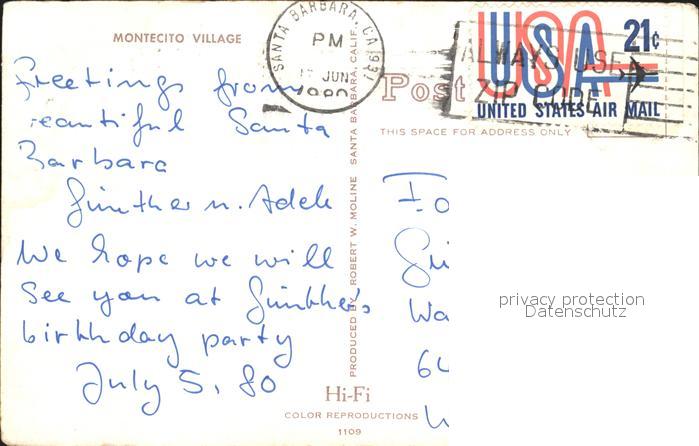 MONTECITO VILLAGE
SANTA BARBARA, CA 931
PM
17 JUN
1980
ALWAYS USE
ZIP CODE
USA 21¢
UNITED STATES AIR MAIL
Post
THIS SPACE FOR ADDRESS ONLY
Greetings from
beautiful Santa
Barbara
Günther u. Adele
We hope we will
see you at Günther's
birthday party
July 5. 80
PRODUCED BY ROBERT W. MOLINE SANTA BARBARA, CALIF.
Wa
64
privacy protection
Datenschutz
Hi-Fi
COLOR REPRODUCTIONS
1109